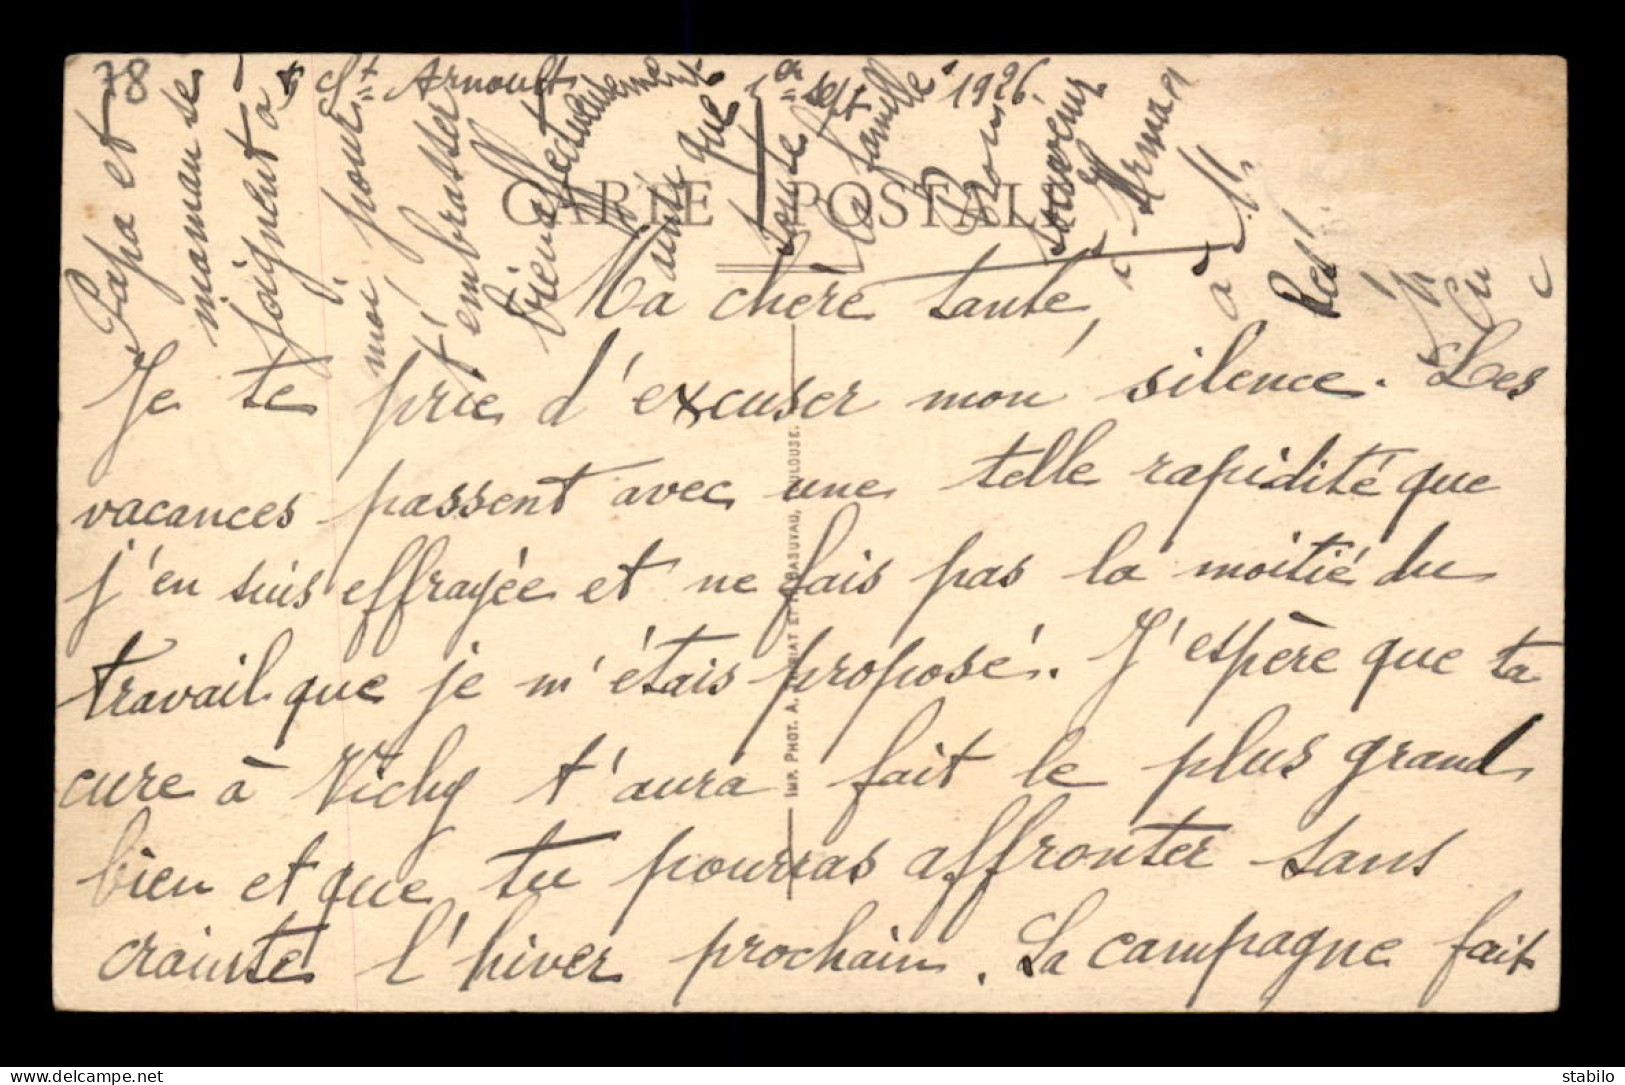 78
St Arnoult 1er sept 1926
CARTE POSTALE
Ma chère tante,
Je te prie d'excuser mon silence. Les
vacances passent avec une telle rapidité que
j'en suis effrayée et ne fais pas la moitié du
travail que je m'étais proposé. J'espère que ta
cure à Vichy t'aura fait le plus grand
bien et que tu pourras affronter sans
crainte l'hiver prochain. La campagne fait
Papa et
maman se
joignent à
moi pour
t'embrasser
bien affectueusement
ainsi que
toute
la famille
Bons
souvenirs
à
à
IMP. PHOT. A. ET TOULOUSE.
delcampe.net
stabilo